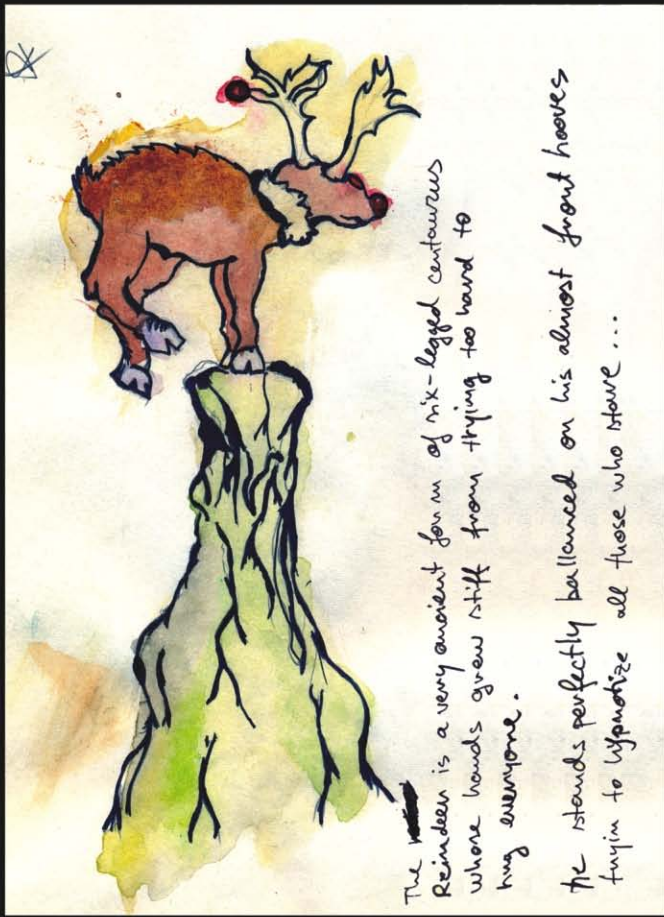 The
Reindeer is a very ancient form of six-legged centaurus
whose hands grew stiff from trying too hard to
hug everyone.
He stands perfectly ballanced on his almost front hooves
tryin to hypnotize all those who stare ...